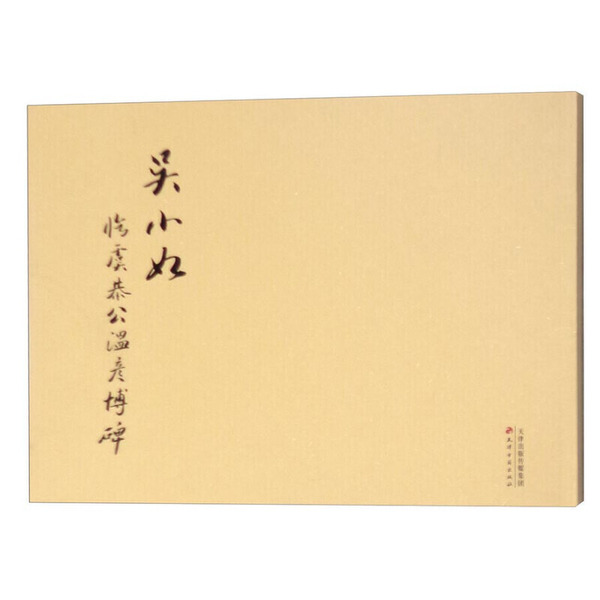 吴小如
临虞恭公温彦博碑
天津出版传媒集团
天津古籍出版社